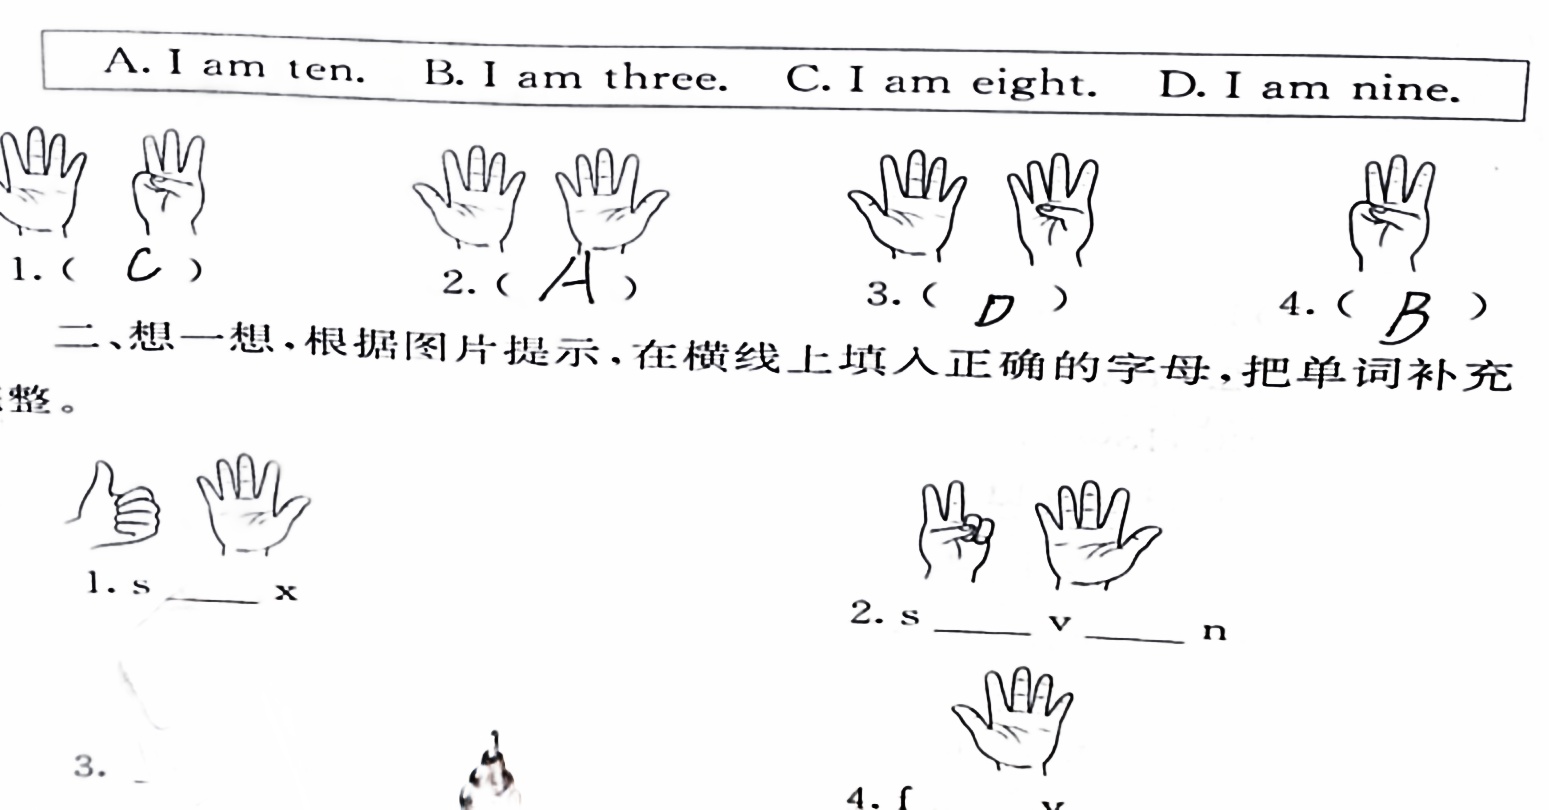 A. I am ten. B. I am three. C. I am eight. D. I am nine.
1. ( C ) 2. ( A ) 3. ( D ) 4. ( B )
二、想一想,根据图片提示,在横线上填入正确的字母,把单词补充
整。
1. s _____ x 2. s _____ v _____ n
3. _
4. f _____ v